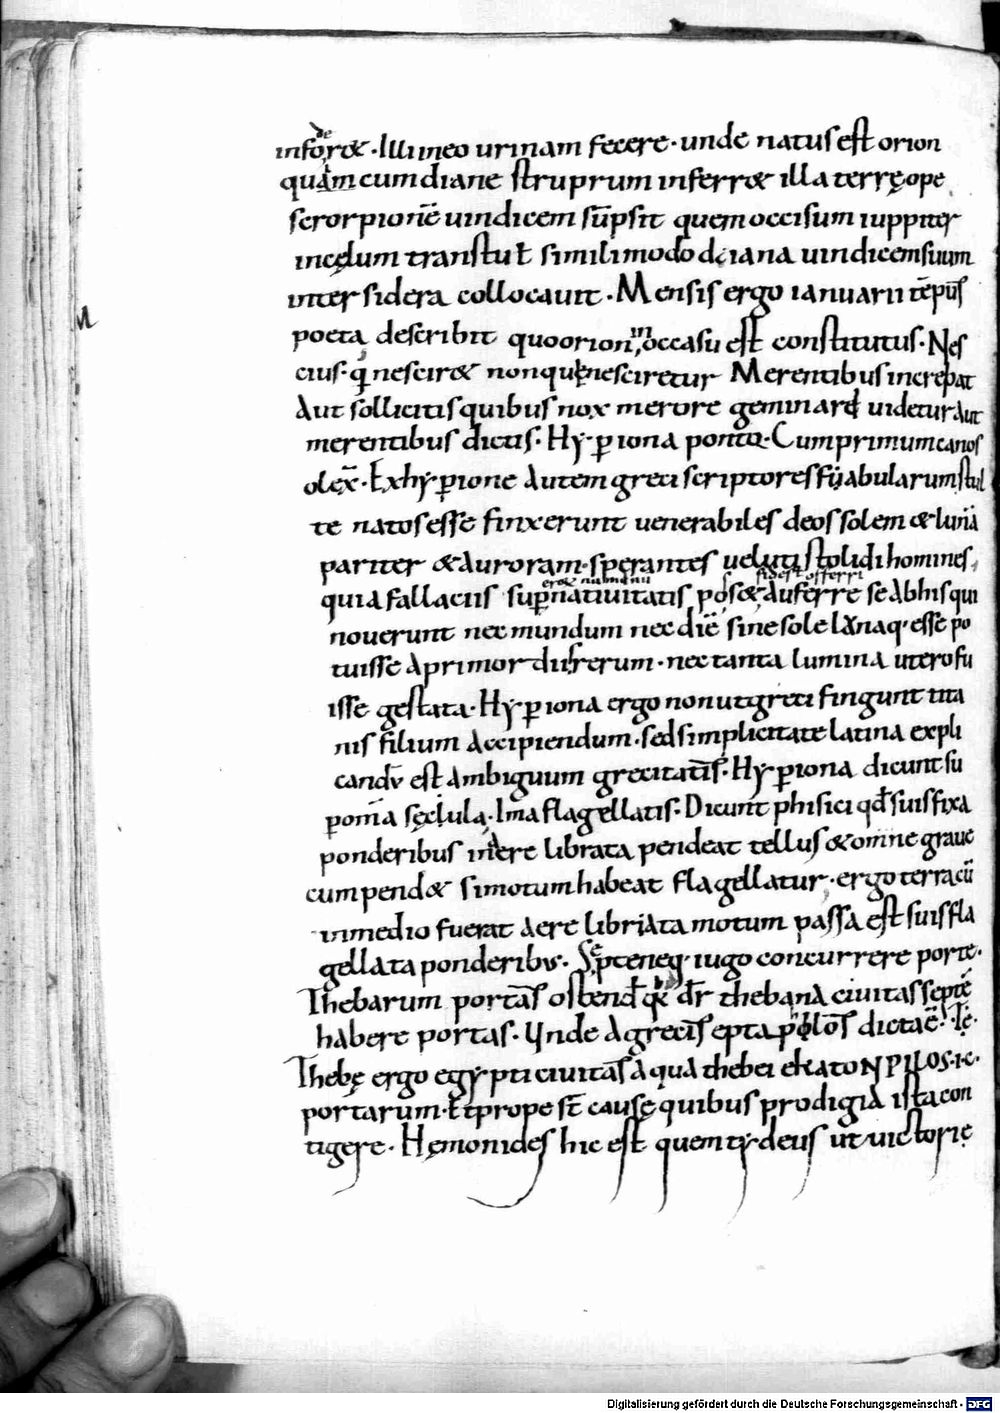 infoderet · Illi in eo urinam fecere · unde natus est orion
quam cum diane struprum inferret illa terrę ope
scrorpionē uindicem sūpsit quem occisum iuppiter
in cęlum transtul simili modo diana uindicem suum
inter sidera collocauit · Mensis ergo ianuarii tēpus
poeta describit quo orion in occasu est constitutus · Nes
cius · qi nesciret non quę nesciretur Merentibus increpat
Aut sollicitis quibus nox merore geminare uidetur aut
merentibus dictis · Hyꝑiona ponto · Cum primum canos
olex̄ · Ex hyꝑione autem greci scriptores fyabularum stul
te natos esse finxerunt uenerabiles deos solem & lunā
pariter & auroram · sperantes ueluti stolidi homines,
erat numinu s· id est offerri
quia fallaciis suꝑ natiuitatis posset auferre se ab his qui
nouerunt nec mundum nec diē sine sole lunaq· esse po
tuisse a primordii rerum · nec tanta lumina utero fu
isse gestata · Hyꝑiona ergo non ut greci fingunt tita
nis filium accipiendum · sed simplicitate latina expli
candū est ambiguum grecitatis · Hyꝑiona dicunt su
ꝑ omīa sęclula · Ima flagellatis · Dicunt phisici qd suis fixa
ponderibus in aere librata pendeat tellus & omne graue
cum pendet si motum habeat flagellatur · ergo terra cū
in medio fuerat aere libriata motum passa est suis fla
gellata ponderibus · Septeneq· iugo concurrere porte ·
Thebarum portas ostend q̄ dr thebana ciuitas septē
habere portas · Unde a grecis epta polos dicta ē · i· ę·
Thebę ergo egypti ciuitas a qua thebei ekaton PILOS · i · c ·
portarum · Et prope st causę quibus prodigia ista con
tigere · Hęmonides hic est quem tydeus ut uictorię